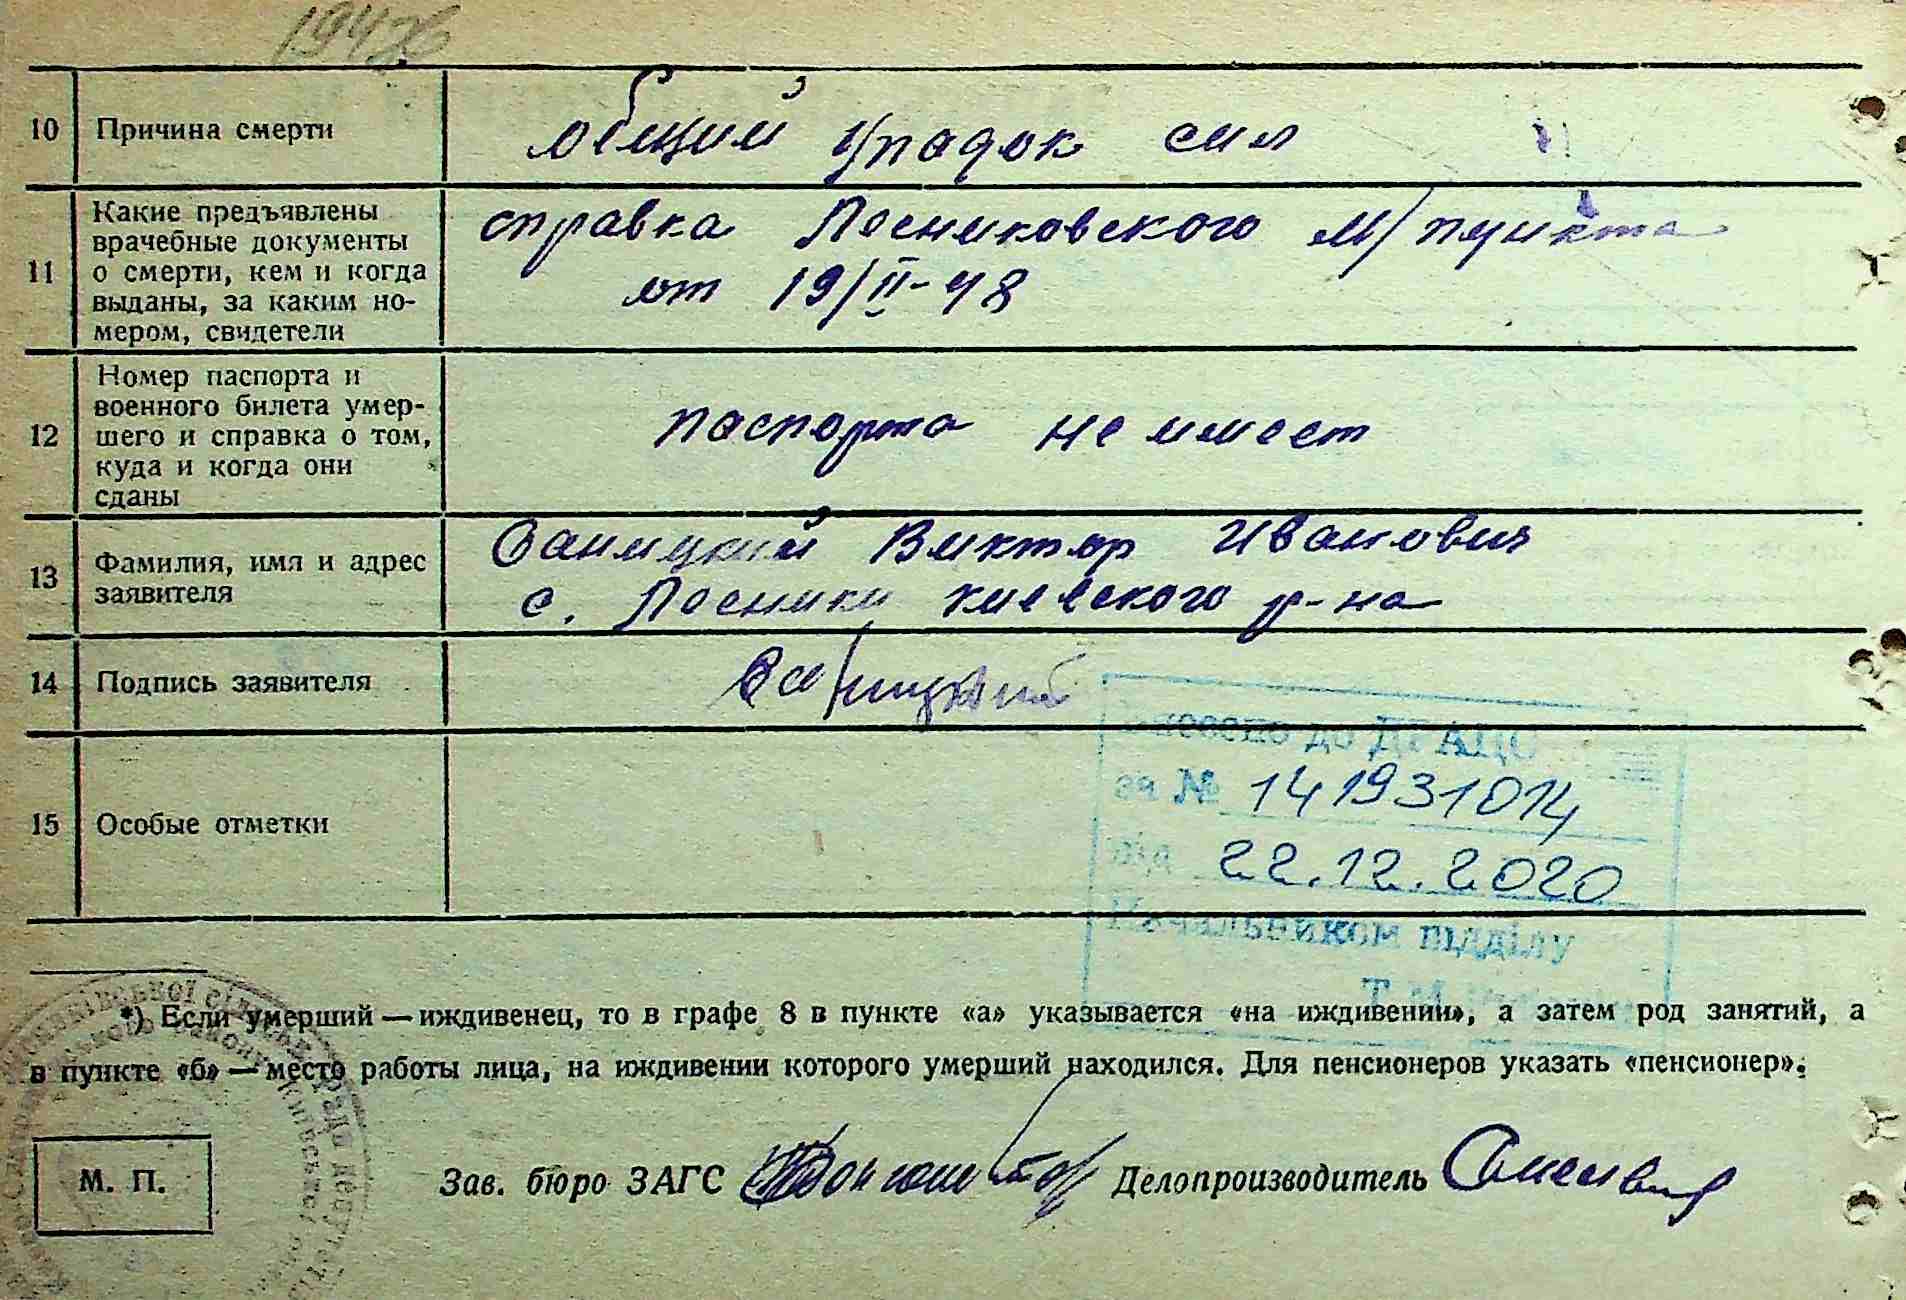 10 Причина смерти общий упадок сил
11 Какие предъявлены
врачебные документы
о смерти, кем и когда
выданы, за каким но-
мером, свидетели
справка Лесниковского м/пункта
от 19/II-48
12 Номер паспорта и
военного билета умер-
шего и справка о том,
куда и когда они
сданы
паспорта не имеет
13 Фамилия, имя и адрес
заявителя
Саницкий Виктор Иванович
с. Лесники Киевского р-на
14 Подпись заявителя Саницкий
15 Особые отметки
до ДРАЦС
за № 141931014
від 22.12.2020
Начальником відділу
*) Если умерший — иждивенец, то в графе 8 в пункте «а» указывается «на иждивении», а затем род занятий, а
в пункте «б» — место работы лица, на иждивении которого умерший находился. Для пенсионеров указать «пенсионер».
М. П.
Зав. бюро ЗАГС
Делопроизводитель